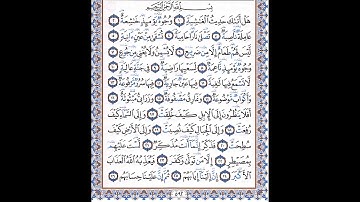 بِسْمِ اللَّهِ الرَّحْمَٰنِ الرَّحِيمِ
هَلْ أَتَىٰكَ حَدِيثُ الْغَٰشِيَةِ ١ وُجُوهٌ يَوْمَئِذٍ خَٰشِعَةٌ ٢
عَامِلَةٌ نَّاصِبَةٌ ٣ تَصْلَىٰ نَارًا حَامِيَةً ٤ تُسْقَىٰ مِنْ عَيْنٍ ءَانِيَةٍ ٥
لَّيْسَ لَهُمْ طَعَامٌ إِلَّا مِن ضَرِيعٍ ٦ لَّا يُسْمِنُ وَلَا يُغْنِي مِن جُوعٍ ٧
وُجُوهٌ يَوْمَئِذٍ نَّاعِمَةٌ ٨ لِّسَعْيِهَا رَاضِيَةٌ ٩ فِي جَنَّةٍ عَالِيَةٍ ١٠
لَّا تَسْمَعُ فِيهَا لَٰغِيَةً ١١ فِيهَا عَيْنٌ جَارِيَةٌ ١٢ فِيهَا سُرُرٌ مَّرْفُوعَةٌ ١٣
وَأَكْوَابٌ مَّوْضُوعَةٌ ١٤ وَنَمَارِقُ مَصْفُوفَةٌ ١٥ وَزَرَابِيُّ مَبْثُوثَةٌ ١٦
أَفَلَا يَنظُرُونَ إِلَى الْإِبِلِ كَيْفَ خُلِقَتْ ١٧ وَإِلَى السَّمَاءِ كَيْفَ
رُفِعَتْ ١٨ وَإِلَى الْجِبَالِ كَيْفَ نُصِبَتْ ١٩ وَإِلَى الْأَرْضِ كَيْفَ
سُطِحَتْ ٢٠ فَذَكِّرْ إِنَّمَا أَنتَ مُذَكِّرٌ ٢١ لَّسْتَ عَلَيْهِم
بِمُصَيْطِرٍ ٢٢ إِلَّا مَن تَوَلَّىٰ وَكَفَرَ ٢٣ فَيُعَذِّبُهُ اللَّهُ الْعَذَابَ
الْأَكْبَرَ ٢٤ إِنَّ إِلَيْنَا إِيَابَهُمْ ٢٥ ثُمَّ إِنَّ عَلَيْنَا حِسَابَهُم ٢٦